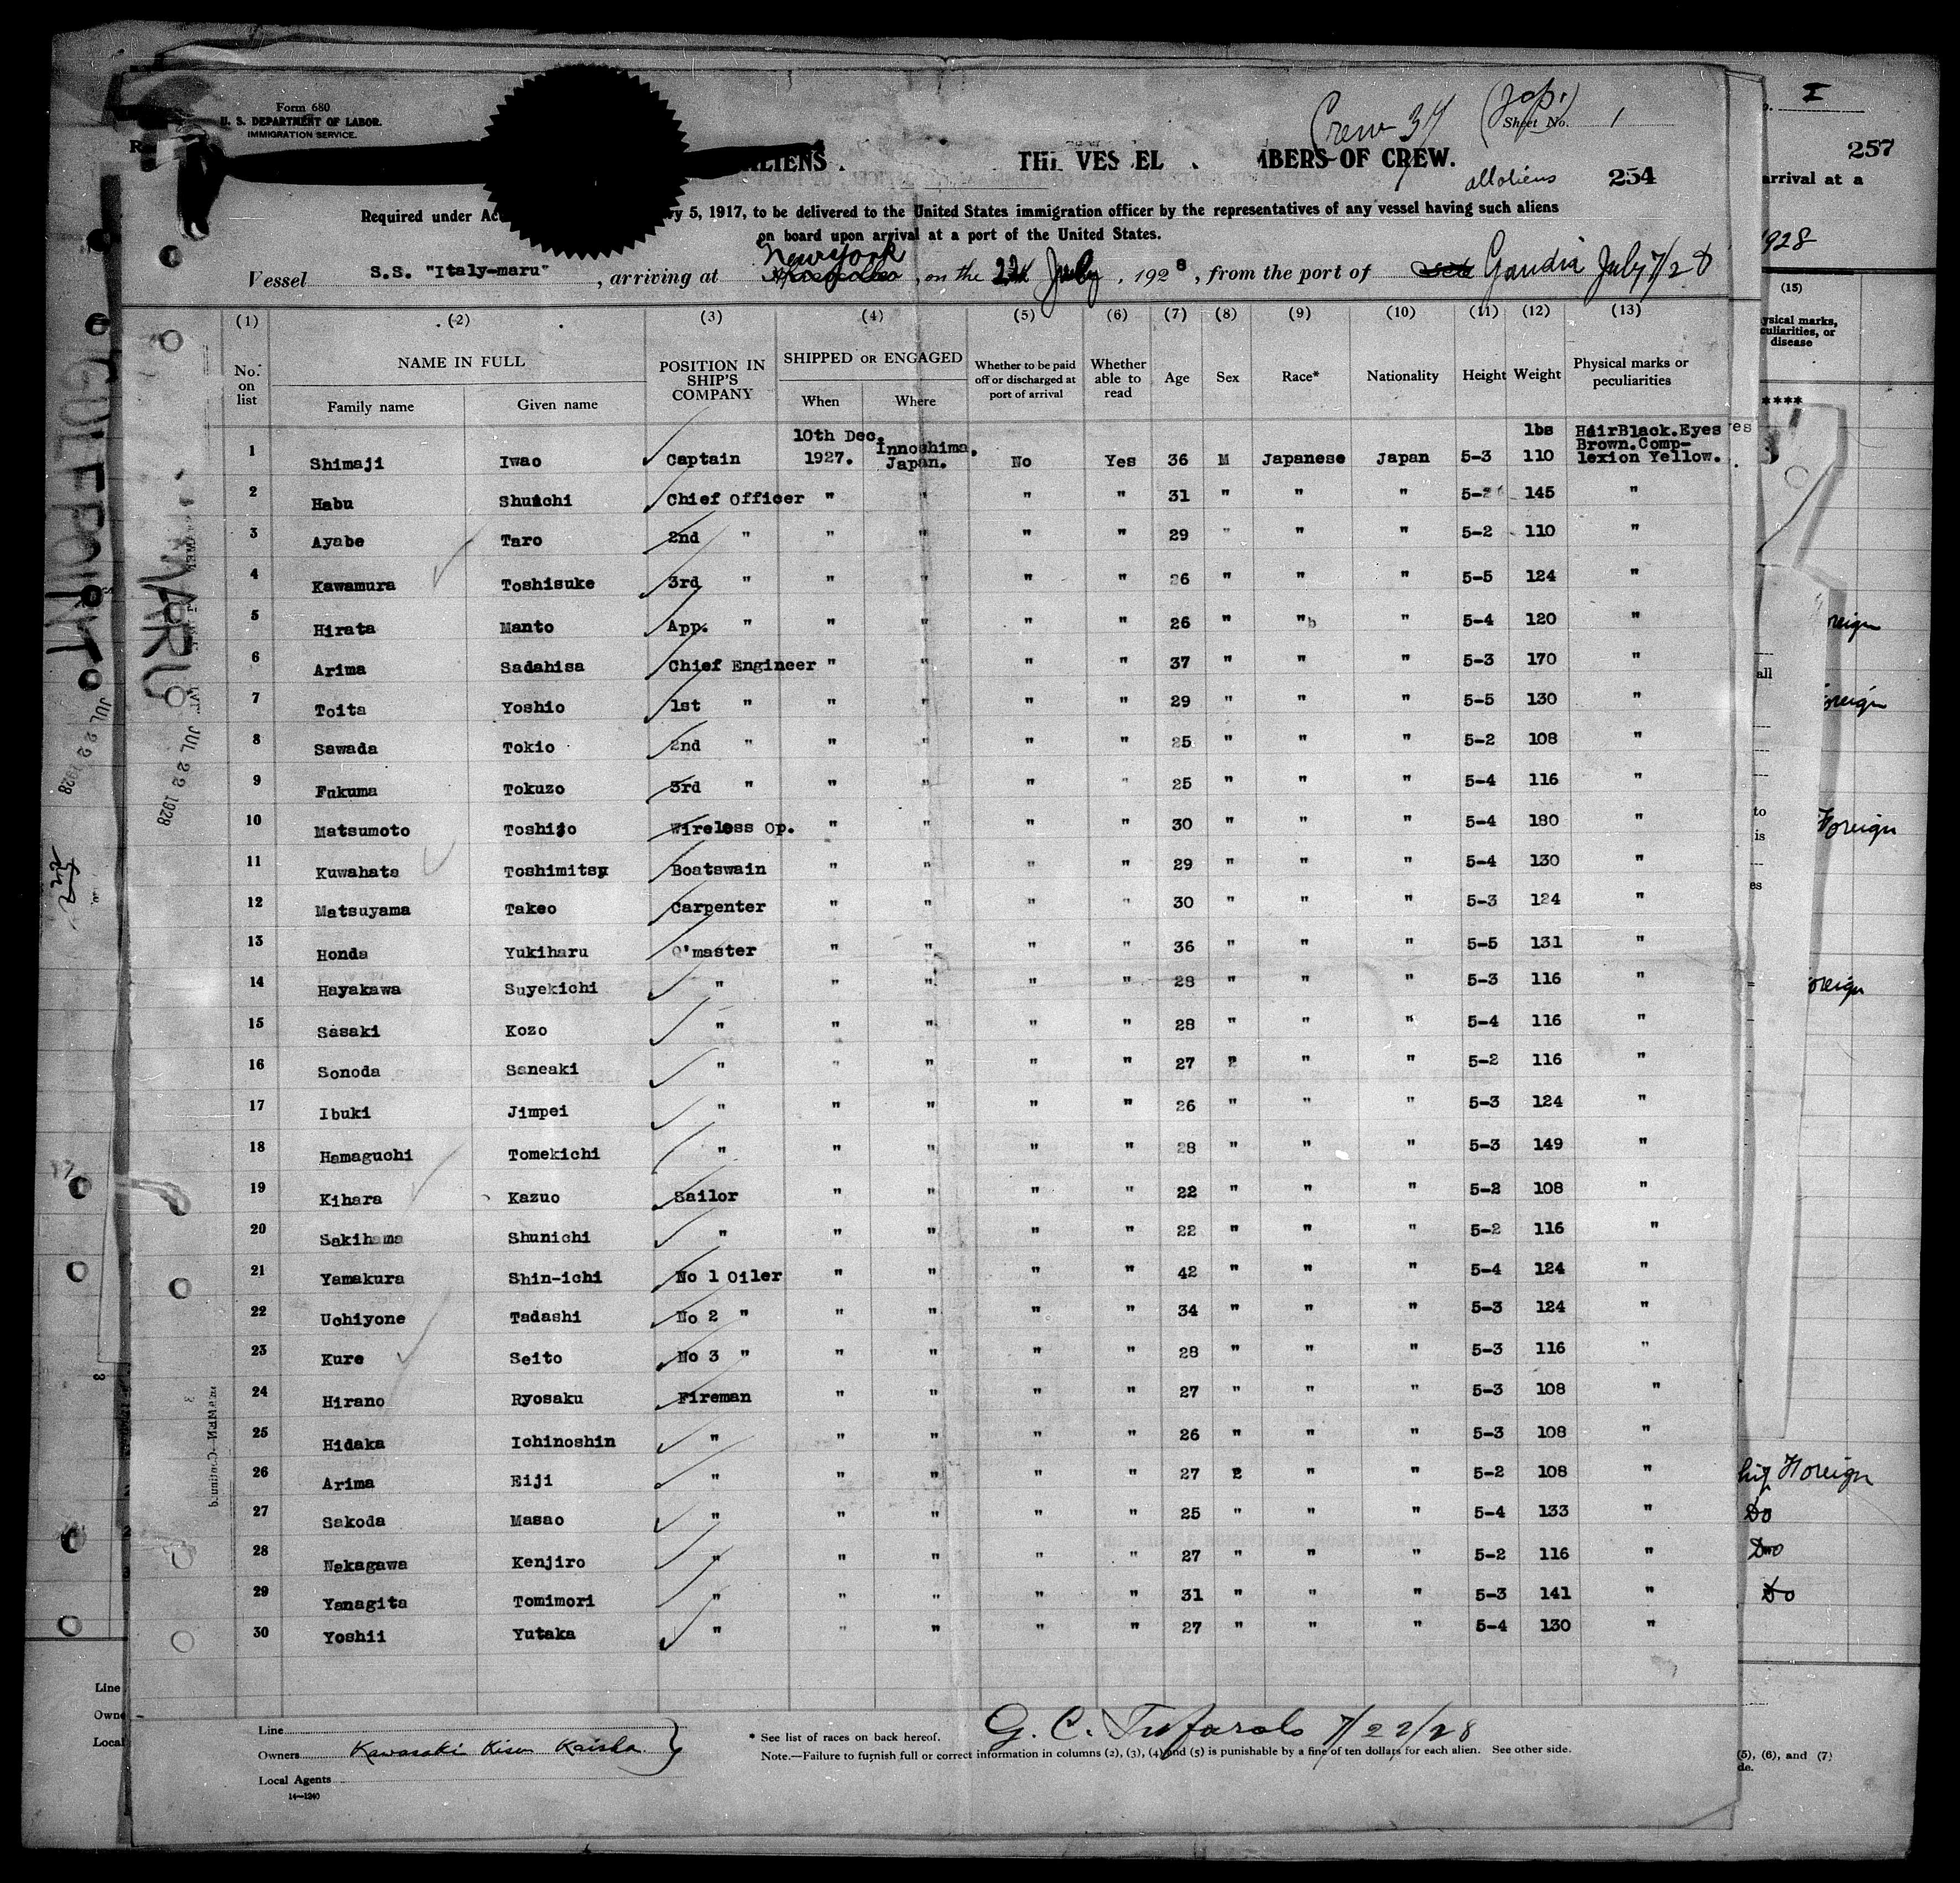 Form 680
U. S. DEPARTMENT OF LABOR.
IMMIGRATION SERVICE.
Crew 34 (Jap.)
Sheet No. 1
ALIENS THE VESSEL MBERS OF CREW.
all aliens 254
Required under Act ry 5, 1917, to be delivered to the United States immigration officer by the representatives of any vessel having such aliens
on board upon arrival at a port of the United States.
New York
Vessel S.S. "Italy-maru", arriving at, on the 22d July, 1928, from the port of Gandia July 7/28
(1) (2) (3) (4) (5) (6) (7) (8) (9) (10) (11) (12) (13)
No. on list NAME IN FULL POSITION IN SHIP'S COMPANY SHIPPED OR ENGAGED Whether to be paid off or discharged at port of arrival Whether able to read Age Sex Race* Nationality Height Weight Physical marks or peculiarities
Family name Given name When Where
1 Shimaji Iwao Captain 10th Dec. 1927. Innoshima. Japan. No Yes 36 M Japanese Japan 5-3 lbs 110 HairBlack.Eyes Brown.Comp-lexion Yellow.
2 Habu Shuichi Chief Officer " " " " 31 " " " 145 "
3 Ayabe Taro 2nd " " " " " 29 " " " 5-2 110 "
4 Kawamura Toshisuke 3rd " " " " " 26 " " " 5-5 124 "
5 Hirata Manto App. " " " " " 26 " " " 5-4 120 "
6 Arima Sadahisa Chief Engineer " " " " 37 " " " 5-3 170 "
7 Toita Yoshio 1st " " " " " 29 " " " 5-5 130 "
8 Sawada Tokio 2nd " " " " " 25 " " " 5-2 108 "
9 Fukuma Tokuzo 3rd " " " " " 25 " " " 5-4 116 "
10 Matsumoto Toshijo Wireless Op. " " " " 30 " " " 5-4 180 "
11 Kuwahata Toshimitsu Boatswain " " " " 29 " " " 5-4 130 "
12 Matsuyama Takeo Carpenter " " " " 30 " " " 5-3 124 "
13 Honda Yukiharu Q'master " " " " 36 " " " 5-5 131 "
14 Hayakawa Suyekichi " " " " " 28 " " " 5-3 116 "
15 Sasaki Kozo " " " " " 28 " " " 5-4 116 "
16 Sonoda Saneaki " " " " " 27 " " " 5-2 116 "
17 Ibuki Jimpei " " " " " 26 " " " 5-3 124 "
18 Hamaguchi Tomekichi " " " " " 28 " " " 5-3 149 "
19 Kihara Kazuo Sailor " " " " 22 " " " 5-2 108 "
20 Sakihama Shunichi " " " " " 22 " " " 5-2 116 "
21 Yamakura Shin-ichi No 1 Oiler " " " " 42 " " " 5-4 124 "
22 Uchiyone Tadashi No 2 " " " " " 34 " " " 5-3 124 "
23 Kure Seito No 3 " " " " " 28 " " " 5-3 116 "
24 Hirano Ryosaku Fireman " " " " 27 " " " 5-3 108 "
25 Hidaka Ichinoshin " " " " " 26 " " " 5-3 108 "
26 Arima Eiji " " " " " 27 " " " 5-2 108 "
27 Sakoda Masao " " " " " 25 " " " 5-4 133 "
28 Nakagawa Kenjiro " " " " " 27 " " " 5-2 116 "
29 Yanagita Tomimori " " " " " 31 " " " 5-3 141 "
30 Yoshii Yutaka " " " " " 27 " " " 5-4 130 "
Line
Owners Kawasaki Kisen Kaisha
Local Agents
14—1240
* See list of races on back hereof.
7/22/28
Note.—Failure to furnish full or correct information in columns (2), (3), (4) and (5) is punishable by a fine of ten dollars for each alien. See other side.
GULFPOINT
JUL 22 1928
MARU
JUL 22 1928
I
257
arrival at a
1928
(15)
ysical marks,
culiarities, or
disease
****
reign
all
oreign
to
is
Foreign
es
oreign
Foreign
Do
Do
Do
Line
Owne
Local
(5), (6), and (7)
de.